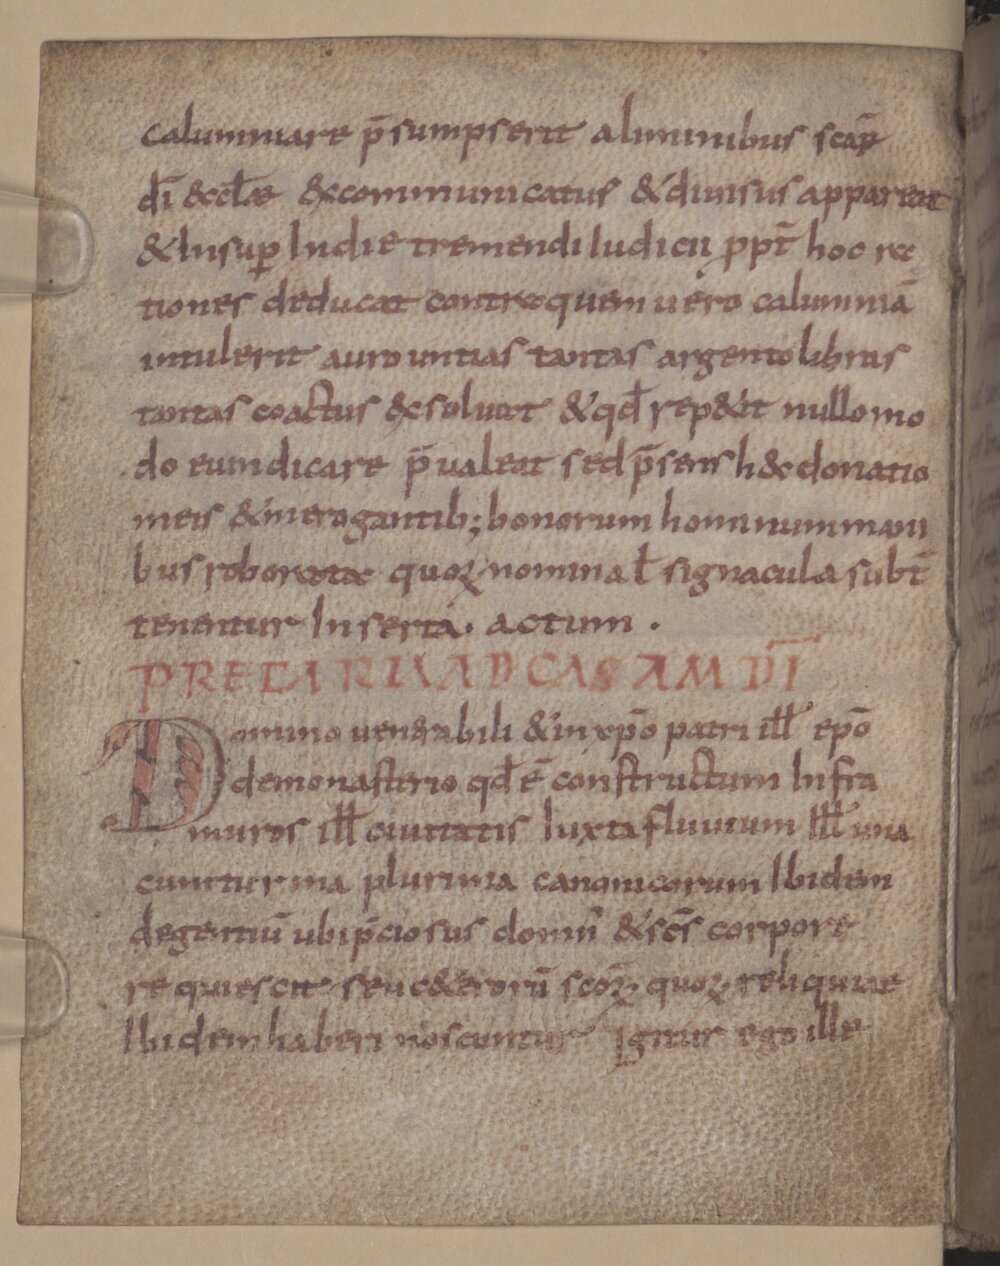 calumniare p̄sumpserit a luminibus scāꝝ
dī &ecl̄ae excommunicatus & diuisus appareat
& Insuꝑ In die tremendi Iudicii ꝓpt̄ hoc ra
tiones deducat contra quem uero calumniā
intulerit auro untias tantas argento libras
tantas coactus exsoluat & qđ rep&it nullo mo
do euindicare p̄ualeat sed p̄sens haec donatio
meis & in&rogantib; bonorum hominum mani
bus roborata quoꝝ nomina ł signacula subt̄
tenentur Inserta. actum.
PRECARIA AD CASAM DĪ
Domino uenerabili & in xp̄o patri ill̄ ep̄o
de monasterio qđ ē constructum Infra
muros ill̄ ciuitatis Iuxta fluuium Ill̄ una
cum turma plurima canonicorum Ibidem
degentiū ubi p̄ciosus domn̄ & sc̄s corpore
requiescit seu c&erorū sc̄oꝝ quoꝝ reliquiae
Ibidem haberi noscuntur Igitur ego ille